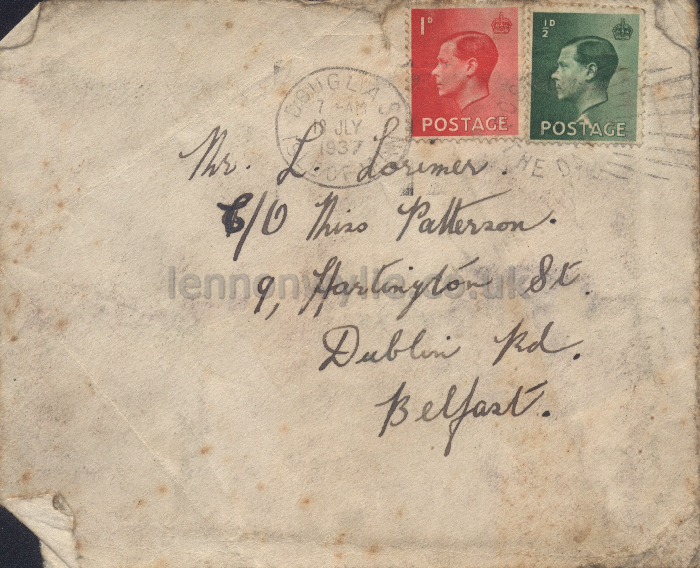 1D
POSTAGE
½D
POSTAGE
DOUGLAS
7 - AM
19 JLY
1937
Mr. L. Lorimer.
C/O Miss Patterson.
9, Hartington St.
Dublin Rd.
Belfast.
lennonwylie.co.uk
THE